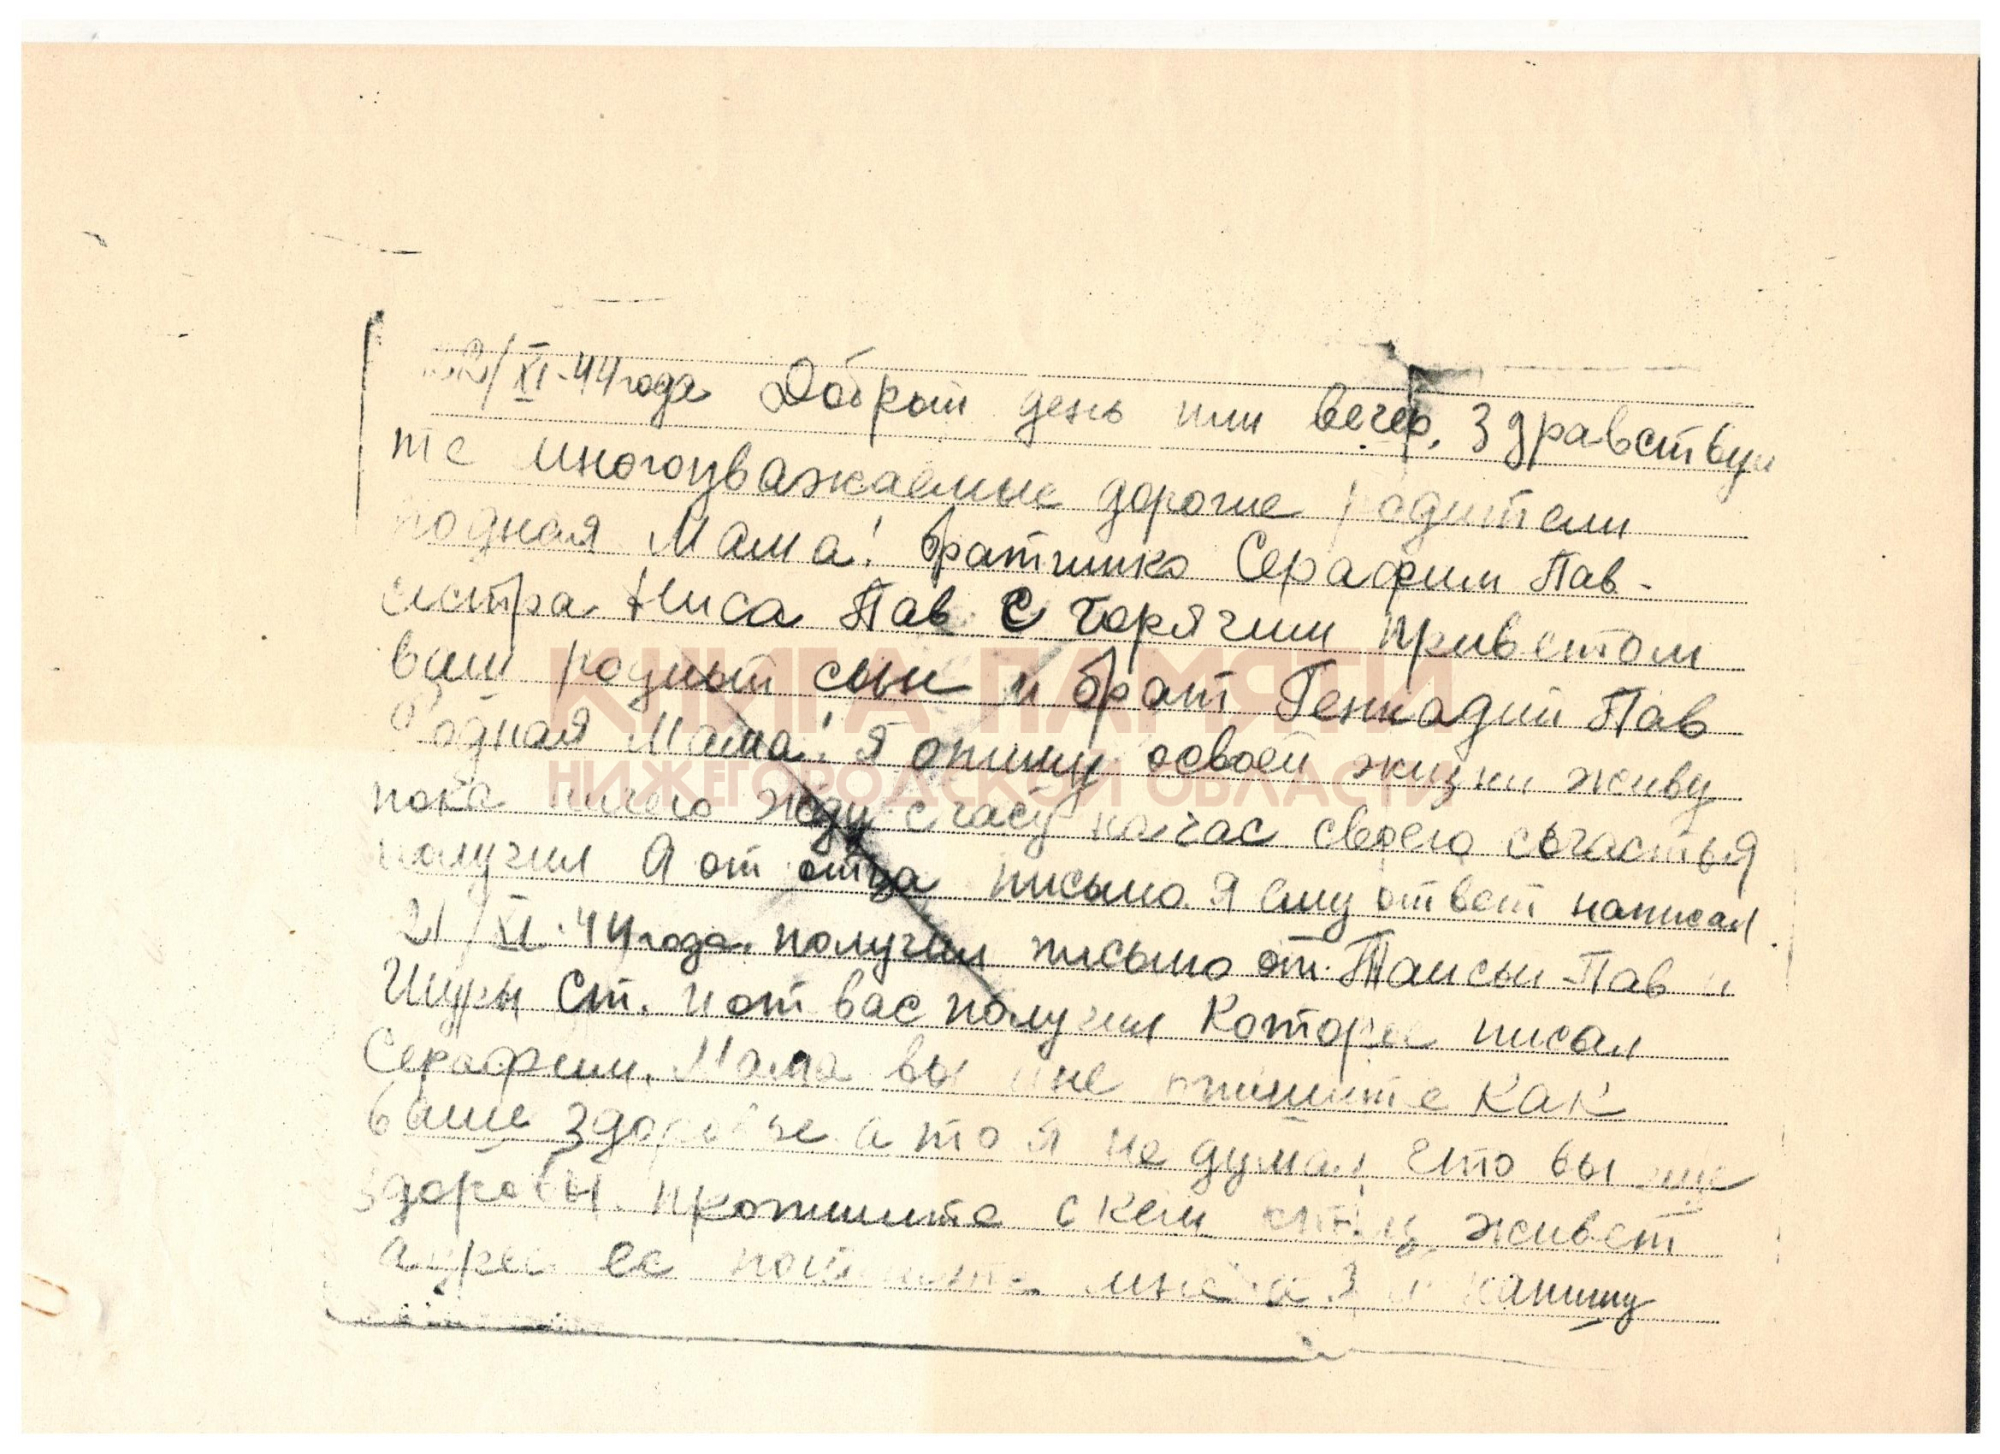 22/XI-44 года Добрый день или вечер, Здравствуй
те многоуважаемые дорогие родители
родная Мама! братишко Серафим Пав-
систра Ниса Пав с горячим приветом
ваш родный сын и брат Геннадий Пав
Родная Мама! Я опишу освоей жизни живу
пока ничего жду с часу на час своего сычастья
получил Я от отца письмо Я ему ответ написал
21/XI-44 года. получил письмо от Таисьи Пав и
Шуры Ст. и от вас получил Которое писал
Серафим. Мама вы мне пишите Как
ваше здоровье а то я не думал что вы
здоровы. пропишите с кем живет
адрес ее мне напишу
КНИГА ПАМЯТИ
НИЖЕГОРОДСКОЙ ОБЛАСТИ